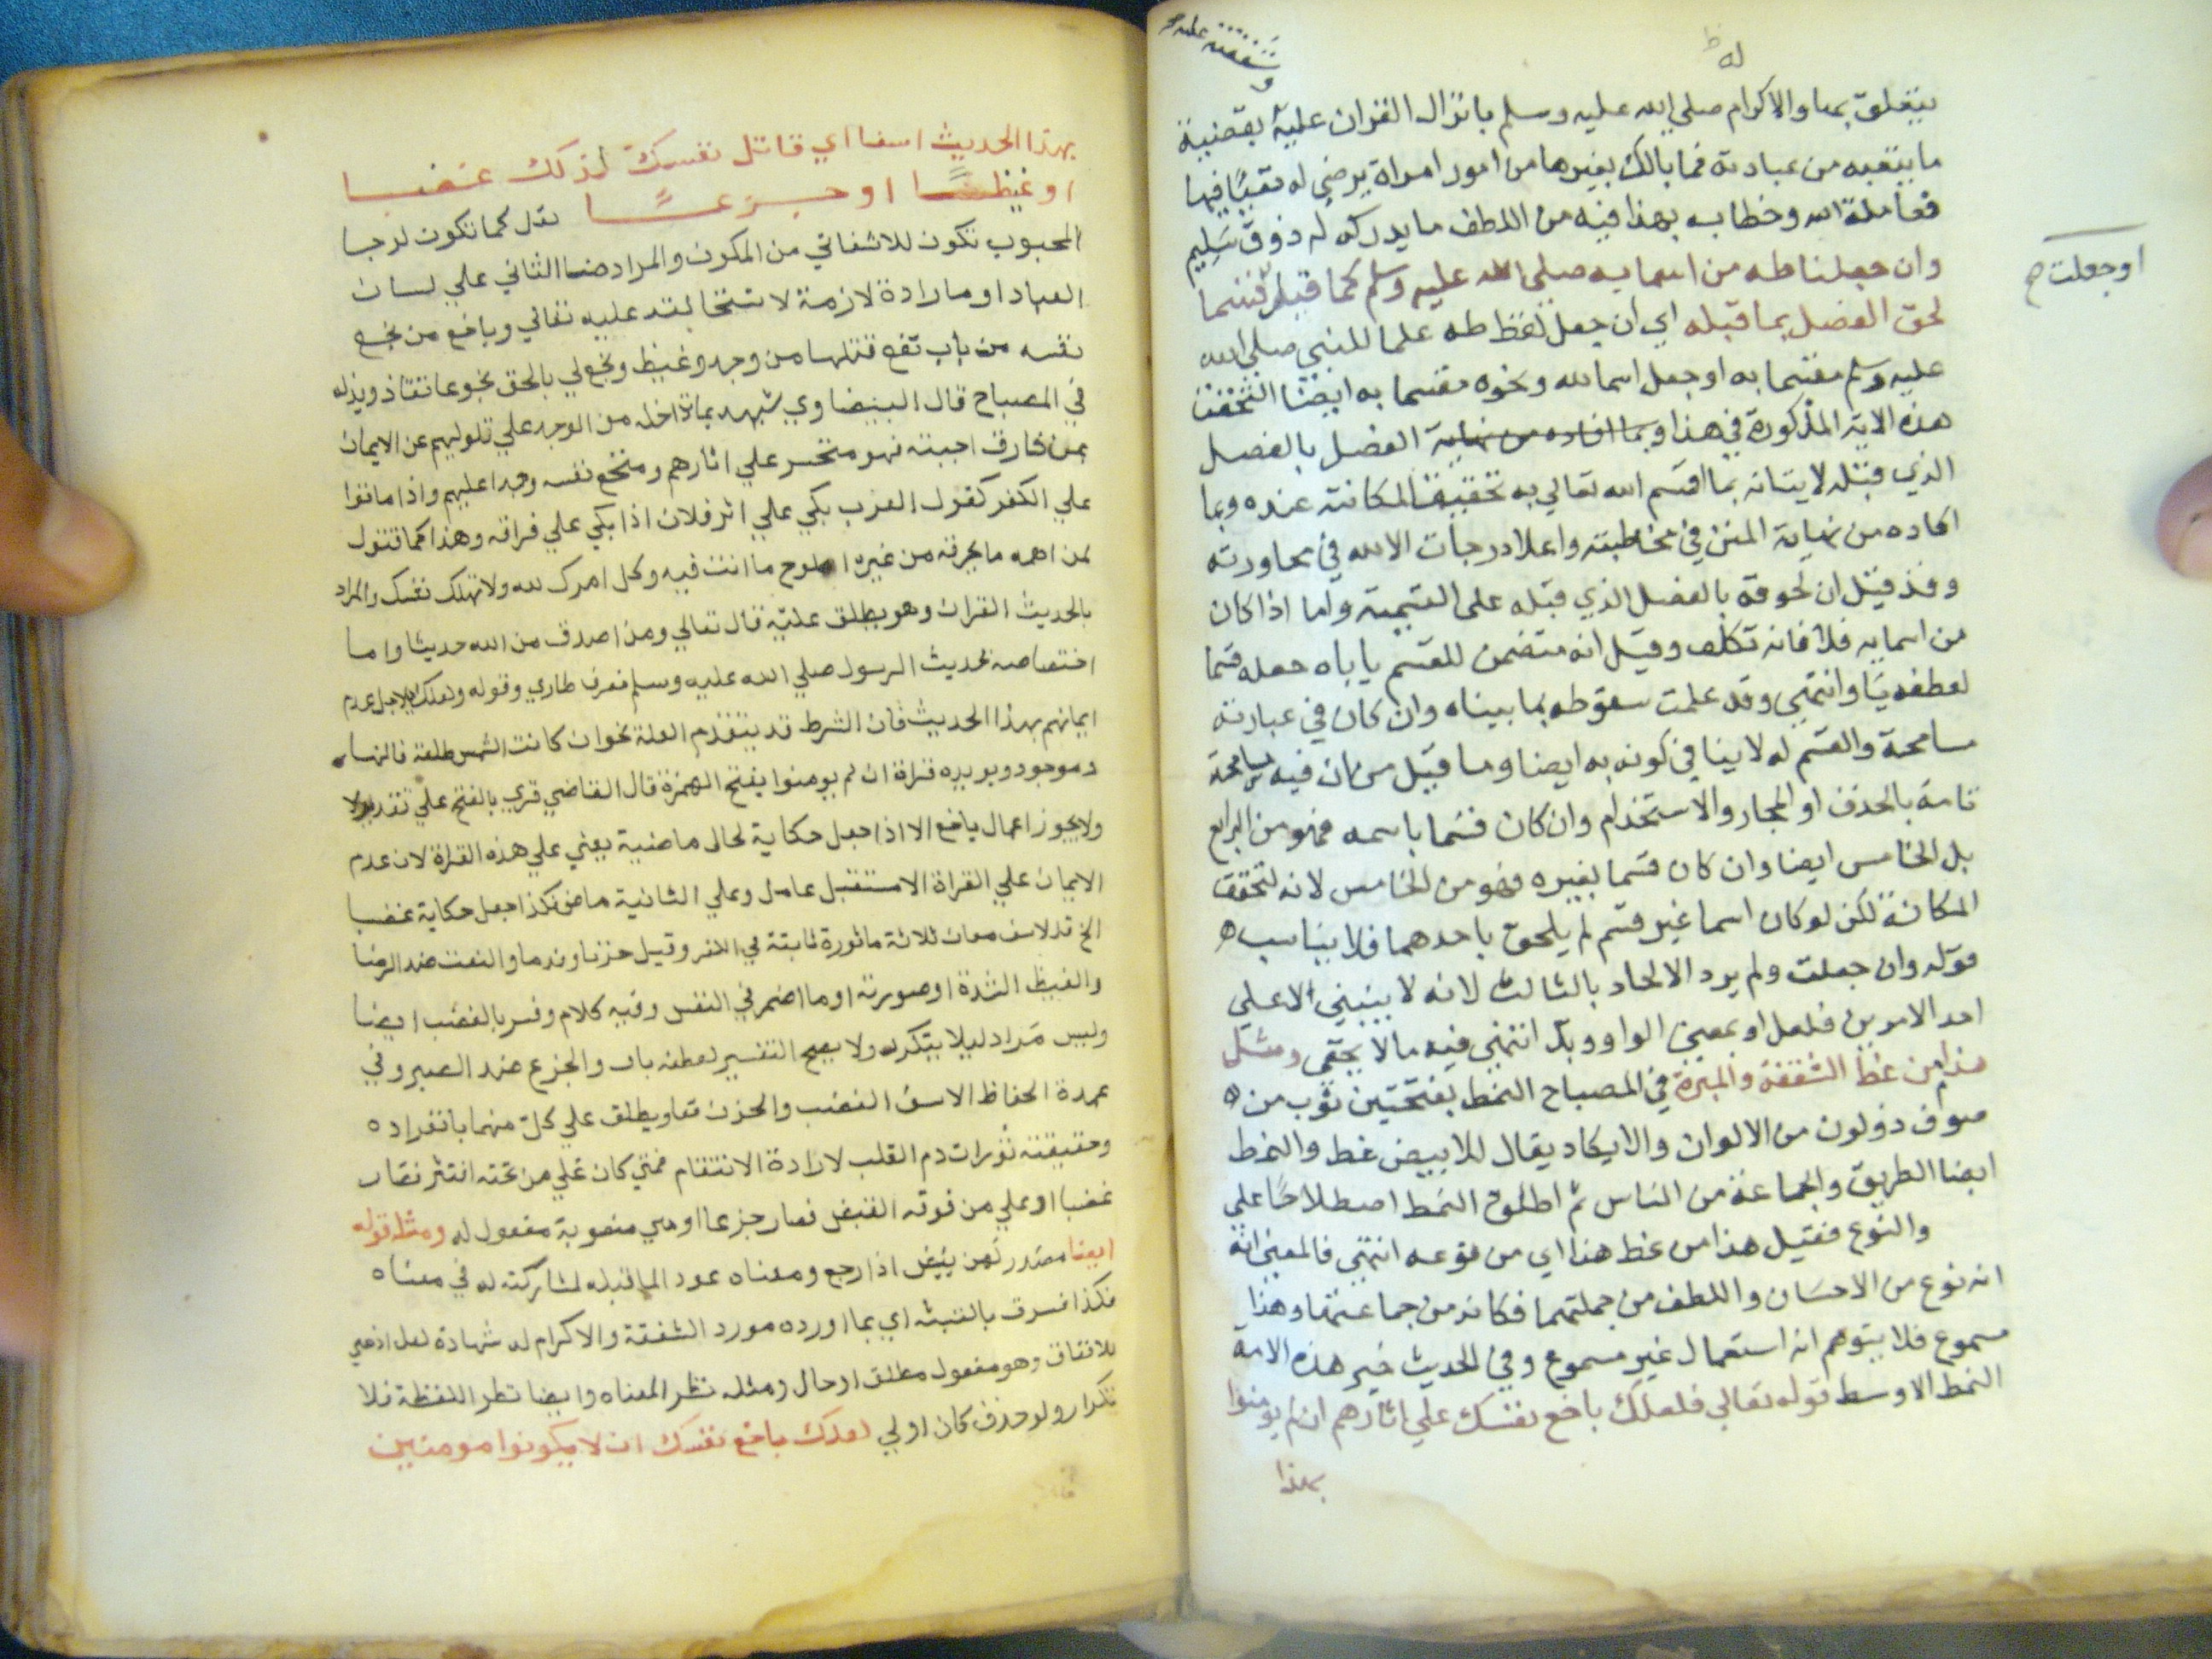 وشفقته عليه
له ط
يتعلق بما والاكرام صلى الله عليه وسلم بانزال القران عليه بقضية
ما يتعبه من عبادته فما بالك بغيرها من امور امراة يرضي له تعبا فيها
فمعاملة الله وخطابه بهذا فيه من اللطف ما يدركه له ذوق سليم
وان جعلنا طه من اسمايه صلى الله عليه وسلم كما قيل او قسما
لحق الفصل بما قبله اي ان جعل لفظ طه علما للنبي صلى الله
او جعلت
عليه وسلم مقسما به او جعل اسما لله ونحوه مقسما به ايضا التحقت
هذه الاية المذكورة في هذا وبما افاده من نهاية الفصل بالفصل
الذي قبله لاتيانه بما اقسم الله تعالي به تحقيقا لمكانته عنده وبما
افاده من نهاية المنن في مخاطبته واعلا درجات الاله في محاورته
وقد قيل ان لحوقه بالفصل الذي قبله على القسمية واما اذا كان
من اسمايه فلا فانه تكلف وقيل انه متضمن للقسم ياباه جعله قسما
لعطفه باو انتهي وقد علمت سقوطه بما بيناه وان كان في عبارته
مسامحة والقسم له لا ينافي كونه به ايضا وما قيل من ان فيه مسامحة
تامة بالحذف او المجاز والاستخدام وان كان قسما باسمه فهو من الرابع
بل الخامس ايضا وان كان قسما بغيره فهو من الخامس لانه لتحقق
المكانة لكن لو كان اسما غير قسم لم يلحق باحدهما فلا يناسب
قوله وان جعلت ولم يرد الالحاد بالثالث لانه لا ينبني الا علي
احد الامرين فلعل او بمعني الواو وبك انتهي فيه ما لا يخفي ومثل
هذا من نمط الشفقة والمبرة في المصباح النمط بفتحتين ثوب من
صوف ذو لون من الالوان والا يكاد يقال للابيض نمط والنمط
ايضا الطريق والجماعة من الناس ثم اطلق النمط اصطلاحا علي
والنوع فقيل هذا من نمط هذا اي من نوعه انتهي فالمعني انه
انه نوع من الاحسان واللطف من جملتهما فكانه من جماعتهما وهذا
مسموع فلا يتوهم انه استعمال غير مسموع وفي الحديث خير هذه الامة
النمط الاوسط قوله تعالي فلعلك باخع نفسك علي اثارهم ان لم يومنوا
بهذا
بهذا الحديث اسفا اي قاتل نفسك لذلك غضبا
او غيظا او جزعا لعل كما تكون لرجا
المحبوب تكون للاشفاق من المكروه والمراد هنا الثاني علي لسان
العباد او ما رادة لازمة لاستحالته عليه تعالي وباخع من بخع
نفسه من باب نفع قتلها من وجد وغيظ وبخع لي بالحق بخوعا انقاذ وبذله
في المصباح قال البيضاوي شبهه بما تداخله من الوجد علي توليهم عن الايمان
بمن فارق احبته فهو متحسر علي اثارهم ومنخع نفسه وجدا عليهم واذا ماتوا
علي الكفر كقول العرب بكي علي اثر فلان اذا بكي علي فراقه وهذا كما تقول
لمن اهمه ما يحرفه من غيره اطرح ما انت فيه وكل امرك لله ولا تهلك نفسك والمراد
بالحديث القران وهو يطلق عليه قال تعالي ومن اصدق من الله حديثا واما
اختصاصه بحديث الرسول صلي الله عليه وسلم فعرف طاري وقوله ولعلك لاجل عدم
ايمانهم بهذا الحديث فان الشرط قد يتقدم العلة نحو ان كانت الشمس طالعة فالنها
ر موجود ويويده قراة ان لم يومنوا بفتح الهمزة قال القاضي قري بالفتح علي تقدير لان
ولا يجوز اعمال باخع الا اذا جعل حكاية لحال ماضية يعني علي هذه القراة لان عدم
الايمان علي القراة الاستقبل عامل وعلي الثانية ماض فكذا جعل حكاية غضبا
الخ قد لاسف معان ثلاثة ماثورة ثابتة في اللغة وقيل حزنا وندما والغضب ضد الرضا
والغيظ الشدة او صورته او ما اضمر في النفس وفيه كلام وفسر بالغضب ايضا
وليس مراد ليلا يتكرر ولا يصح التفسير لعطفه باو والجزع ضد الصبر وفي
عمدة الحفاظ الاسف الغضب والحزن معا ويطلق علي كل منهما بانفراده
وحقيقته ثوران دم القلب لارادة الانتقام فمتي كان علي من تحته انتشر فصار
غضبا او علي من فوقه انقبض فصار جزعا او هي منصوبة مفعول له ومثله قوله
ايضا مصدر آض يئيض اذا رجع ومعناه عود الما قبله لمشاركته له في معناه
فكذا فسرت بالتشبيه اي بما اورده مورد الشفقة والاكرام له شهادة لعل اذهي
للاشفاق وهو مفعول مطلق او حال ومثله نظر المعناه وايضا نظر اللفظة فلا
تكرار ولو حذف كان اولي لعلك باخع نفسك ان لا يكونوا مومنين